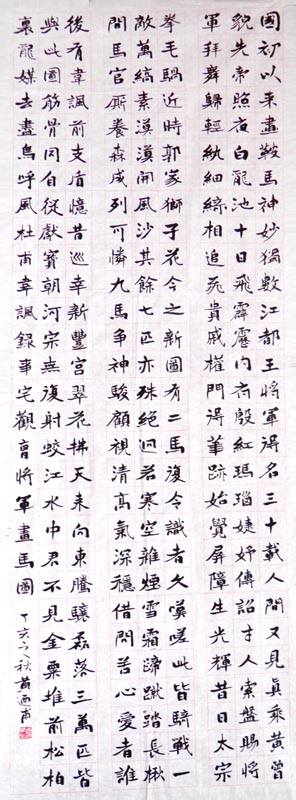 國初以来畫鞍馬神妙獨數江都王將軍得名三十載人間又見真乘黄曾
貌先帝照夜白龍池十日飛霹靂内府殷紅瑪瑙婕妤傳詔才人索盤賜將
軍拜舞歸輕紈細綺相追飛貴戚權門得筆跡始覺屏障生光輝昔日太宗
拳毛騧近時郭家獅子花今之新圖有二馬復令識者久嘆嗟此皆騎戰一
敵萬縞素漠漠開風沙其餘七匹亦殊絶迥若寒空雜煙雪霜蹄蹴踏長楸
間馬官厮養森成列可憐九馬争神駿顧視清高氣深穩借問苦心愛者誰
後有韋諷前支盾憶昔巡幸新豐宫翠花拂天来向東騰驤磊落三萬匹皆
與此圖筋骨同自從獻寶朝河宗無復射蛟江水中君不見金粟堆前松柏
裏龍媒去盡鳥呼風杜甫韋諷録事宅觀曹將軍畫馬圖 丁亥之秋黄甫